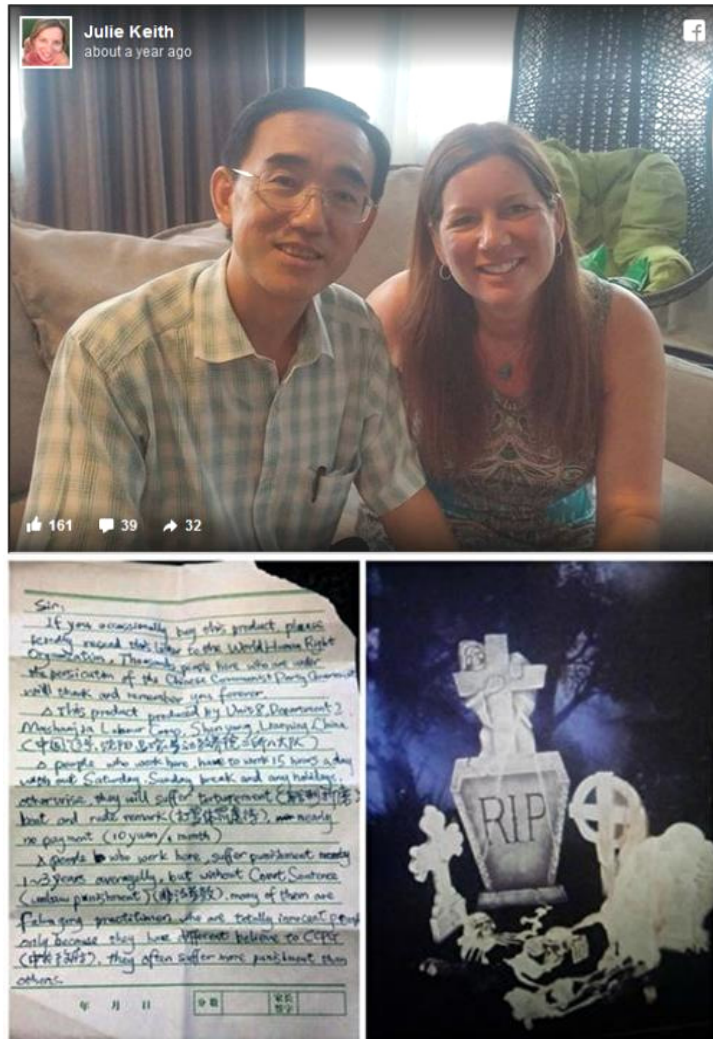 Julie Keith
about a year ago
f
161
39
32
Sir:
If you occasionally buy this product, please
kindly resend this letter to the World Human Right
Organization. Thousands people here who are under
the persicution of the Chinese Communist Party Government
will thank and remember you forever.
This product produced by Unit 8, Department 2
Mashanjia Labour Camp, Shenyang, Liaoning, China
people who work here, have to work 15 hours a day
with out Saturday, Sunday break and any holidays,
otherwise, they will suffer torturement
beat and rude remark nearly
no payment (10 yuan/1 month)
people who work here, suffer punishment nearly
1~3 years averagelly, but without Court Sentence
(unlaw punishment) many of them are
Falungong practitioner, who are totally innocent people
only because they have different believe to CCPG
they often suffer more punishment than
others.
年 月 日
分数
家长
签字
RIP